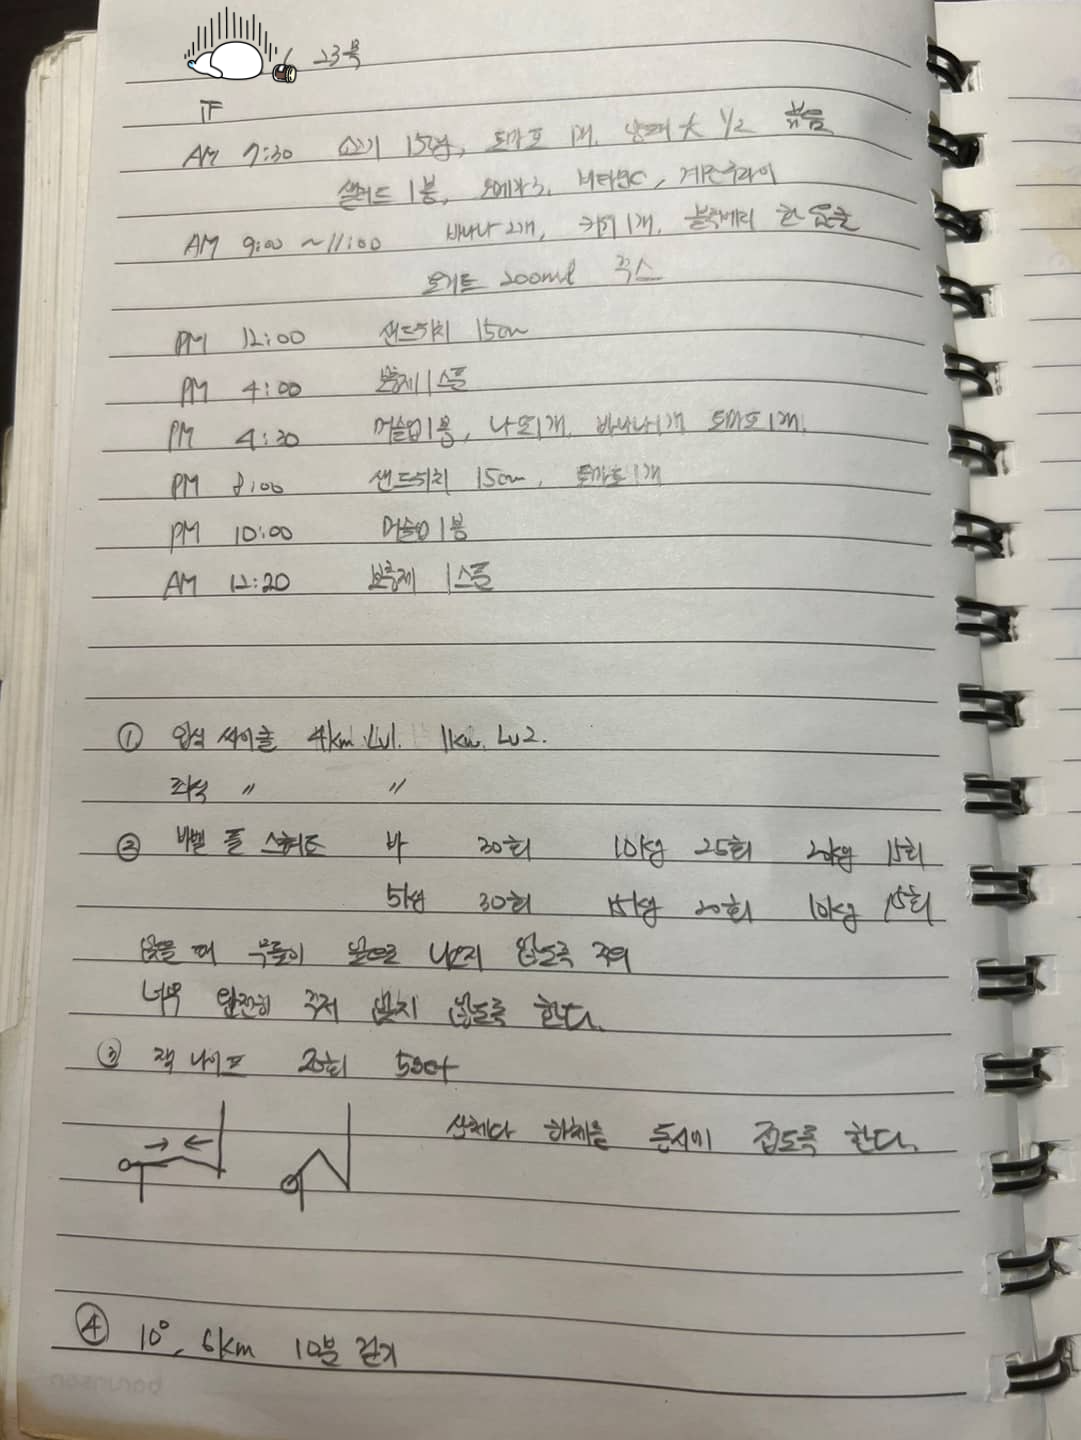 23목
AM 7:30 소고기 150g, 토마토 1개, 양배추 大 1/2 볶음
샐러드 1봉, 오메가3, 비타민C, 계란후라이
AM 9:00 ~ 11:00 바나나 2개, 키위 1개, 블랙베리 한 움큼
요거트 200ml 믹스
PM 12:00 샌드위치 15cm
PM 4:00 보충제 1스푼
PM 4:30 머슬업 1봉, 바나나 1개 토마토 1개.
PM 8:00 샌드위치 15cm, 토마토 1개
PM 10:00 머슬업 1봉
AM 12:20 보충제 1스푼
① 입식 싸이클 4km Lv1. 1km. Lv2.
좌식 〃 〃
② 바벨 풀 스쿼트 바 30회 10kg 25회 20kg 15회
5kg 30회 15kg 20회 10kg 15회
앉을 때 무릎이 앞으로 나오지 않도록 주의
너무 완전히 주저 앉지 않도록 한다.
③ 잭 나이프 20회 5set
상체와 하체를 동시에 접도록 한다.
④ 10°, 6km 10분 걷기